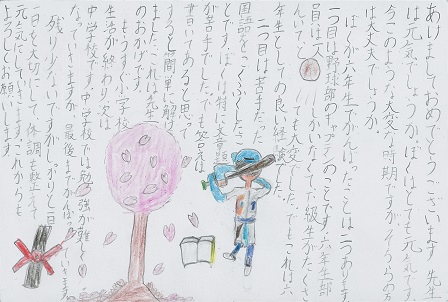 あけましておめでとうございます。先生
は元気でしょうか。ぼくはとても元気です。
今このような大変な時期
は大丈夫でしょうか。
ぼくが六年生でがんばったことは二つあります。
一つ目は野球部のキャプテンのことです。六年生部
員は一人 しかいなく、下級生がたくさ
んいて とても大変でした。でもこれは六
年生としての良い経験
二つ目は苦手だった
国語をこくふくした
とです。ぼくは特に文章
が苦手でした。でも答えは
書いてあると思って
すると簡単に解
ました。これは先
のおかげです。
もうすぐ小学校
生活が終わり次は
中学校です。中学校では勉強が難しく
なっていきますが、最後まで
残り少ないですがしっかりと一日
一日を大切にして、体調を整えて
元気にしていきます。これからも
よろしくお願いします。